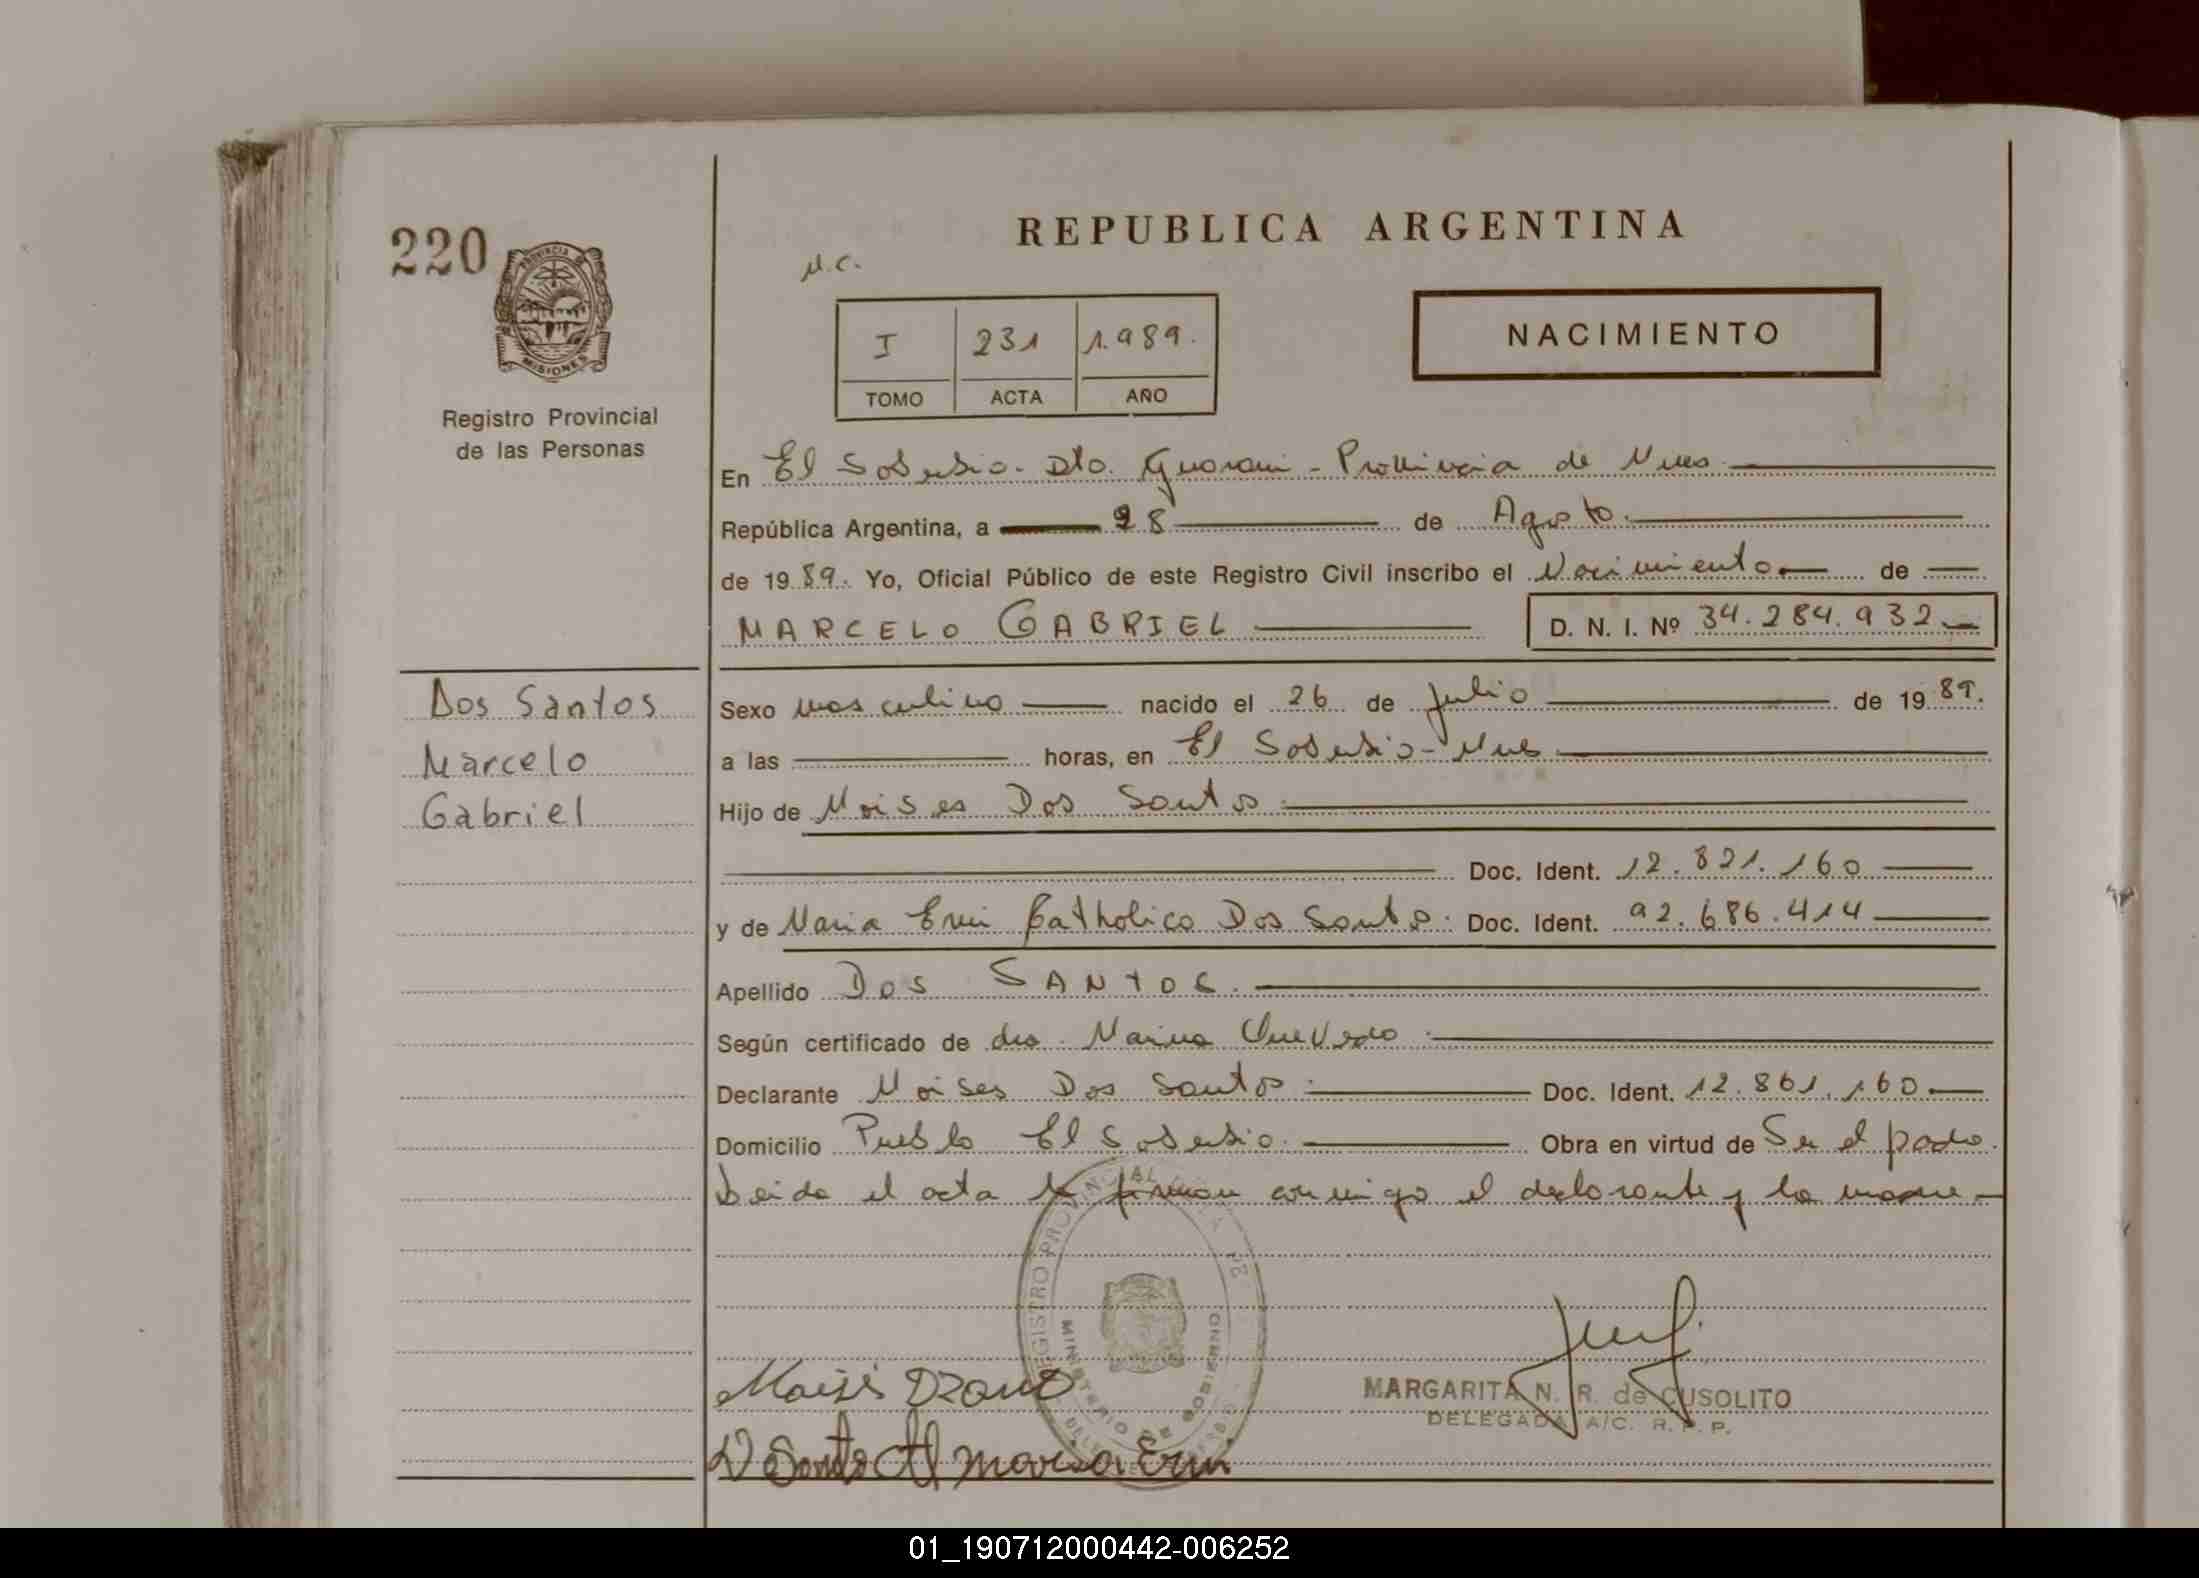 220
PROVINCIA DE
MISIONES
Registro Provincial
de las Personas
REPUBLICA ARGENTINA
M.C.
I 231 1.989.
TOMO ACTA AÑO
NACIMIENTO
En El Soberbio. Dto. Guarani - Provincia de Mnes
República Argentina, a 28 de Agosto.
de 1989. Yo, Oficial Público de este Registro Civil inscribo el Nacimiento de
MARCELO GABRIEL D. N. I. Nº 34.284.932
Dos Santos
Marcelo
Gabriel
Sexo masculino nacido el 26 de Julio de 1989.
a las horas, en El Soberbio - Mnes
Hijo de Moises Dos Santos
Doc. Ident. 12.821.160
y de Maria Eni Catholico Dos Santos. Doc. Ident. 92.686.414
Apellido DOS SANTOS.
Según certificado de dra. Marina Quevedo
Declarante Moises Dos Santos Doc. Ident. 12.861.160
Domicilio Pueblo El Soberbio. Obra en virtud de Ser el padre.
Leida el acta la firman conmigo el declarante y la madre
REGISTRO PROVINCIAL DE
MINISTERIO DE GOBIERNO
MARGARITA N. R. de CUSOLITO
DELEGADA A/C. R. P. P.
01_190712000442-006252